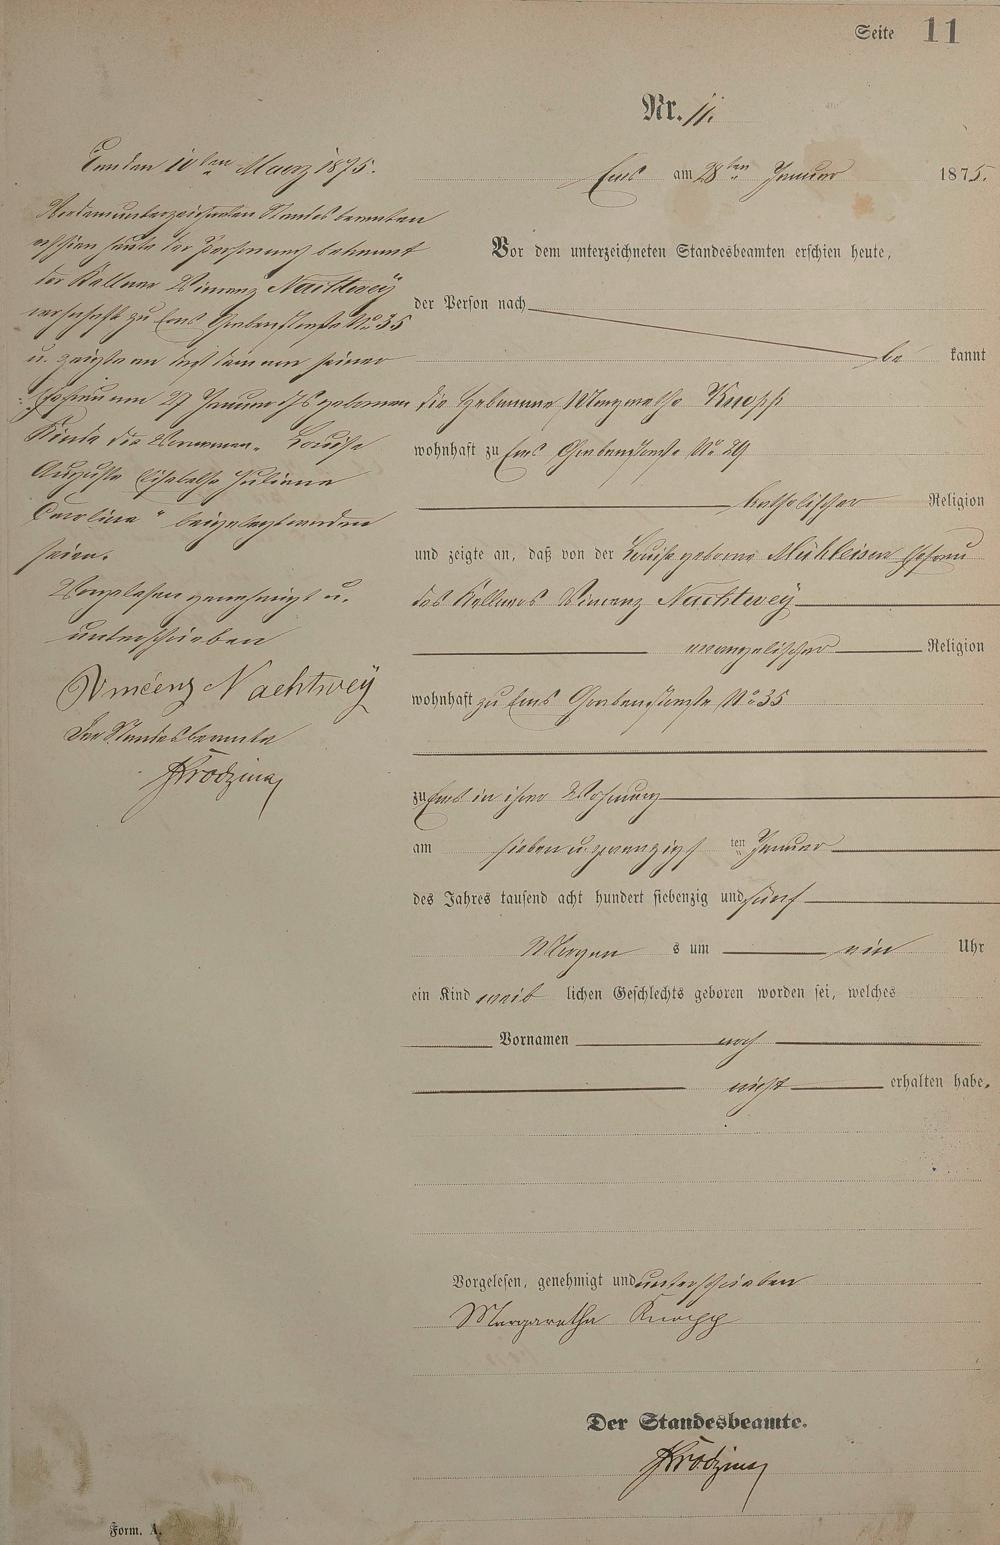 Seite 11
Nr. 11.
Ems den 10ten Maerz 1875.
Vor dem unterzeichneten Standesbeamten
erschien heute der Person nach bekannt
der Kellner Vincenz Nachtwey
wohnhaft zu Ems Grabenstraße No 35
u. zeigte an daß dem von seiner
Ehefrau am 27 Januar d Js geborenen
Kinde die Vornamen „Louise
Auguste Elisabethe Juliane
Caroline" beigelegt worden
seien.
Vorgelesen genehmigt u.
unterschrieben
Vincenz Nachtwey
Der Standesbeamte
Ems am 28ten Januar 1875.
Vor dem unterzeichneten Standesbeamten erschien heute,
der Person nach
be kannt
die Hebamme Margaretha Knopp
wohnhaft zu Ems Grabenstraße No 29
katholischer Religion
und zeigte an, daß von der Louise geborne Mühleisen Ehefrau
des Kellners Vincenz Nachtwey
evangelischer Religion
wohnhaft zu Ems Grabenstraße No 35
zu Ems in ihrer Wohnung
am sieben u. zwanzigsten Januar
des Jahres tausend acht hundert siebenzig und fünf
Morgens um ein Uhr
ein Kind weiblichen Geschlechts geboren worden sei, welches
Vornamen noch
nicht erhalten habe.
Vorgelesen, genehmigt und unterschrieben
Margaretha Knopp
Der Standesbeamte.
Form. A.